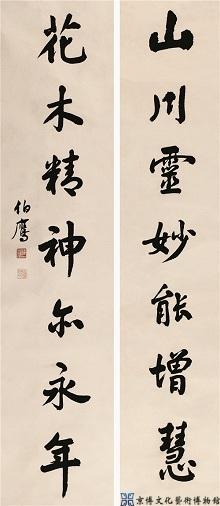 山川靈妙能增慧
花木精神亦永年
伯鷹
京博文化藝術博物館